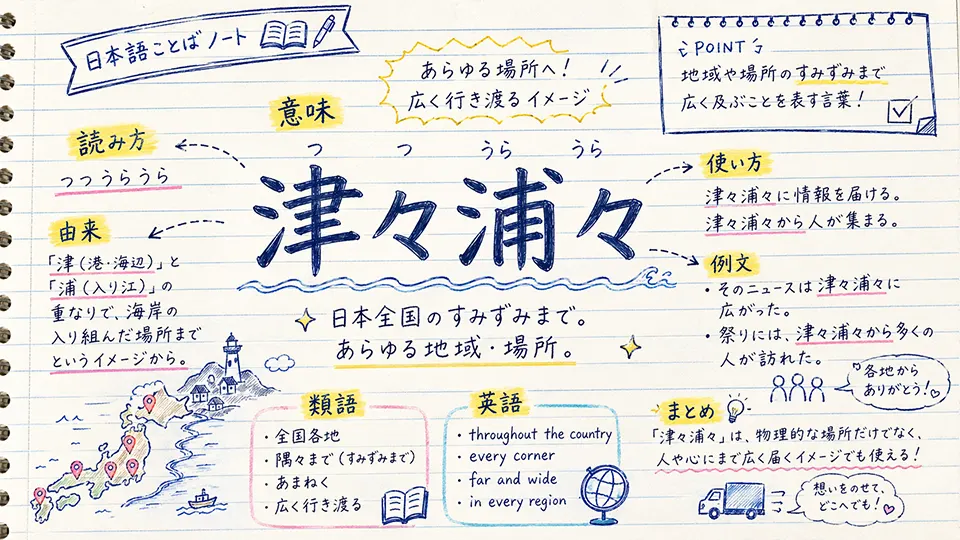 日本語ことばノート
あらゆる場所へ!
広く行き渡るイメージ
POINT
地域や場所のすみずみまで
広く及ぶことを表す言葉!
意味
読み方
つつうらうら
つ つ うら うら
津々浦々
使い方
津々浦々に情報を届ける。
津々浦々から人が集まる。
由来
「津(港・海辺)」と
「浦(入り江)」の
重なりで、海岸の
入り組んだ場所まで
というイメージから。
日本全国のすみずみまで。
あらゆる地域・場所。
例文
・そのニュースは津々浦々に
広がった。
・祭りには、津々浦々から多くの
人が訪れた。
各地から
ありがとう!
類語
・全国各地
・隅々まで(すみずみまで)
・あまねく
・広く行き渡る
英語
・throughout the country
・every corner
・far and wide
・in every region
まとめ
「津々浦々」は、物理的な場所だけでなく、
人や心にまで広く届くイメージでも使える!
想いをのせて、
どこへでも!